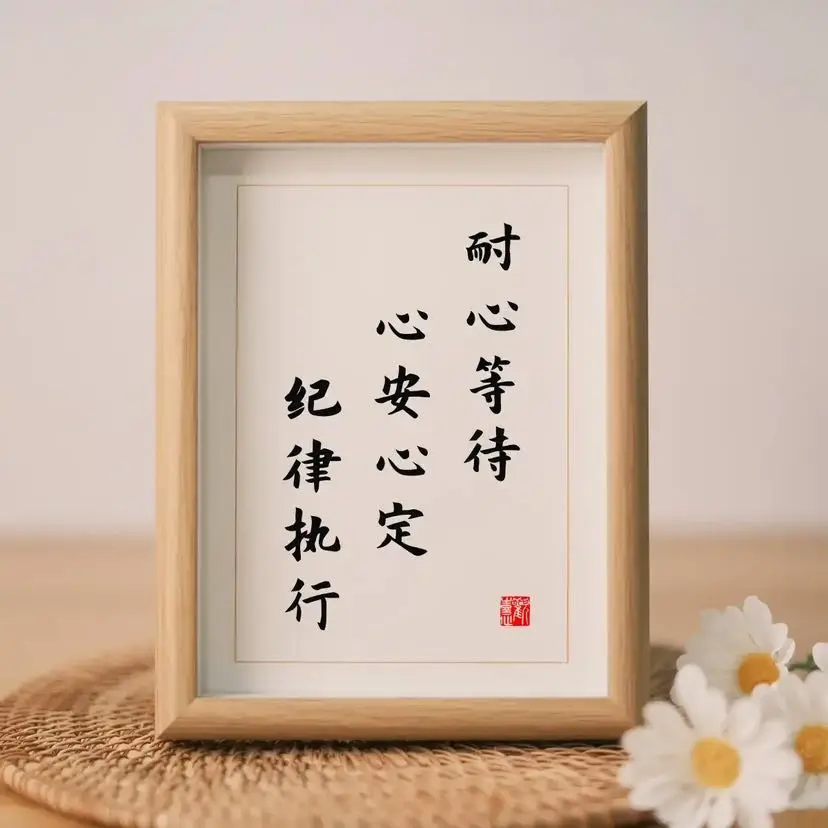 耐心等待
心安心定
纪律执行